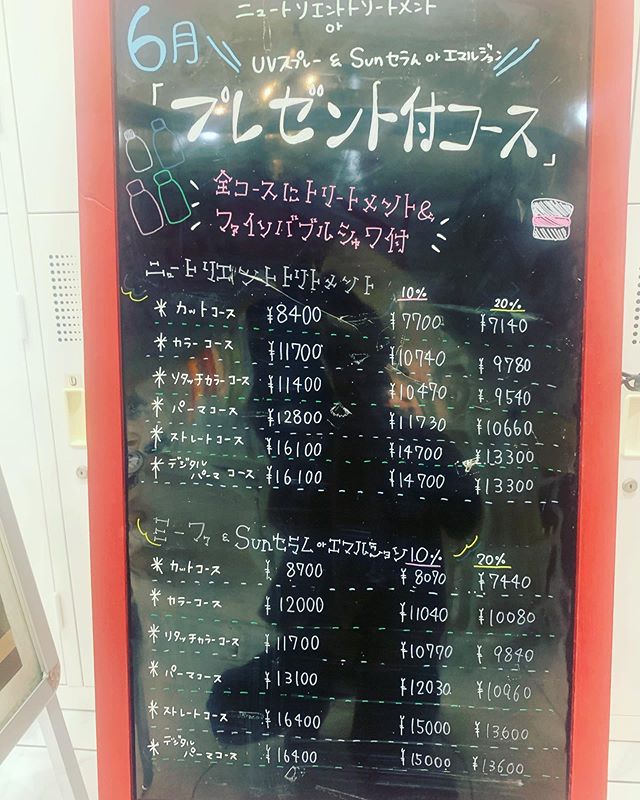 ニュートリエントトリートメント
or
6月 UVスプレー & Sunセラム or エマルジョン
「プレゼント付コース」
全コースにトリートメント&
ファインバブルシャワ付
ニュートリエントトリトメント 10% 20%
* カットコース ¥8400 ¥7700 ¥7140
* カラーコース ¥11700 ¥10740 ¥9780
* リタッチカラーコース ¥11400 ¥10470 ¥9540
* パーマコース ¥12800 ¥11730 ¥10660
* ストレートコース ¥16100 ¥14700 ¥13300
* デジタルパーマコース ¥16100 ¥14700 ¥13300
ミーファ & Sunセラム or エマルジョン 10% 20%
* カットコース ¥8700 ¥8070 ¥7440
* カラーコース ¥12000 ¥11040 ¥10080
* リタッチカラーコース ¥11700 ¥10770 ¥9840
* パーマコース ¥13100 ¥12030 ¥10960
* ストレートコース ¥16400 ¥15000 ¥13600
* デジタルパーマコース ¥16400 ¥15000 ¥13600